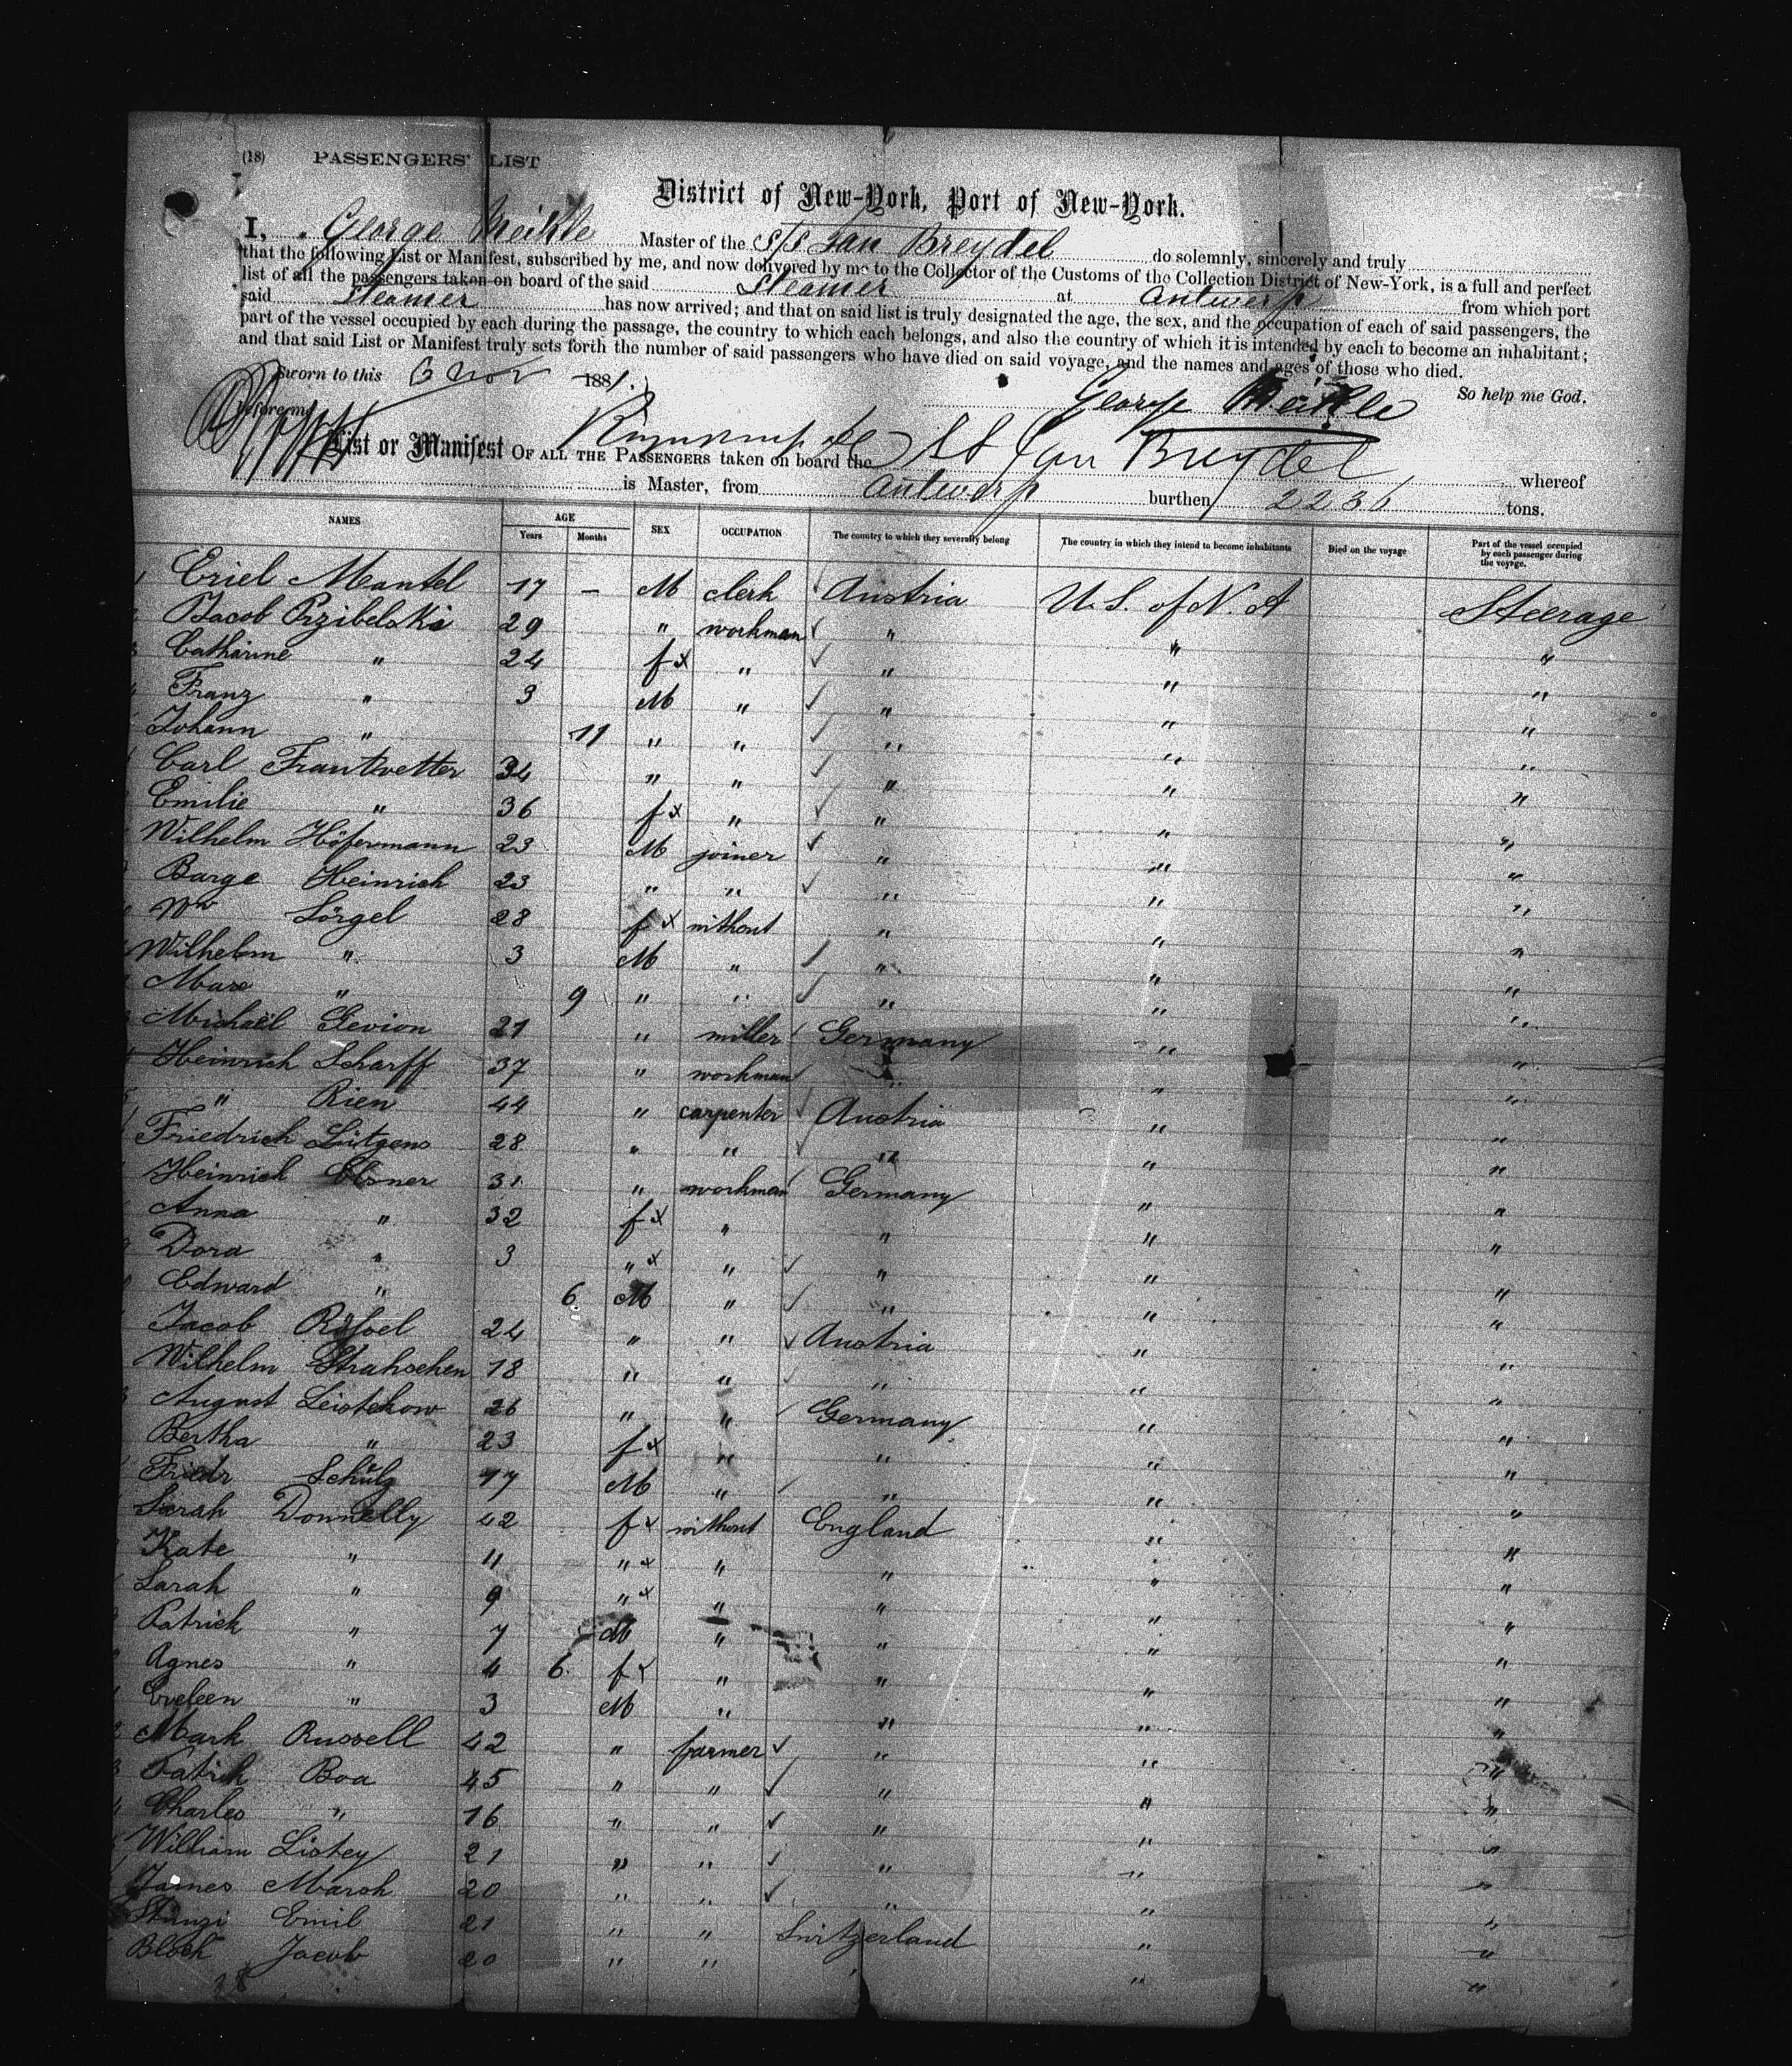 (18) PASSENGERS' LIST
District of New-York, Port of New-York.
I, George Meikle Master of the S/S Jan Breydel do solemnly, sincerely and truly
that the following List or Manifest, subscribed by me, and now delivered by me to the Collector of the Customs of the Collection District of New-York, is a full and perfect
list of all the passengers taken on board of the said Steamer at Antwerp from which port
said Steamer has now arrived; and that on said list is truly designated the age, the sex, and the occupation of each of said passengers, the
part of the vessel occupied by each during the passage, the country to which each belongs, and also the country of which it is intended by each to become an inhabitant;
and that said List or Manifest truly sets forth the number of said passengers who have died on said voyage, and the names and ages of those who died.
Sworn to this 6 Nov 1881. So help me God.
before me George Meikle
List or Manifest OF ALL THE PASSENGERS taken on board the SS Jan Breydel whereof
is Master, from Antwerp burthen 2236 tons.
NAMES AGE Years Months SEX OCCUPATION The country to which they severally belong The country in which they intend to become inhabitants Died on the voyage Part of the vessel occupied by each passenger during the voyage.
1 Eriel Mantel 17 — M clerk Austria U.S. of N. A Steerage
Jacob Przibelski 29 " workman " " "
3 Catharine " 24 f x " " " "
4 Franz " 3 M " " " "
Johann " 11 " " " " "
Carl Frautvetter 34 " " " " "
Emilie " 36 f x " " " "
Wilhelm Höfermann 23 M joiner " " "
Barge Heinrich 23 " " " " "
Ww Sörgel 28 f x without " " "
Wilhelm " 3 M " " " "
Max " 9 " " " " "
Michaël Gevion 21 " miller Germany " "
Heinrich Scharff 37 " workman " " "
" Rien 44 " carpenter Austria " "
Friedrich Lütgens 28 " " " " "
Heinrich Elsner 31 " workman Germany " "
Anna " 32 f x " " " "
Dora " 3 " x " " " "
Edward " 6 M " " " "
Jacob 24 " " Austria " "
Wilhelm Strahschen 18 " " " " "
August Leistekow 26 " " Germany " "
Bertha " 23 f x " " " "
Friedr Schulz 17 M " " " "
Sarah Donnelly 42 f x without England " "
Kate " 11 " x " " " "
Sarah " 9 " x " " " "
Patrick " 7 M " " " "
Agnes " 4 6 f x " " " "
Eveleen " 3 M " " " "
Mark Russell 42 " farmer " " "
Patrick Boa 45 " " " " "
Charles " 16 " " " " "
William Listey 21 " " " " "
James Marsh 20 " " " " "
Stünzi Emil 21 " " Switzerland " "
Bloch Jacob 20 " " " " "
38